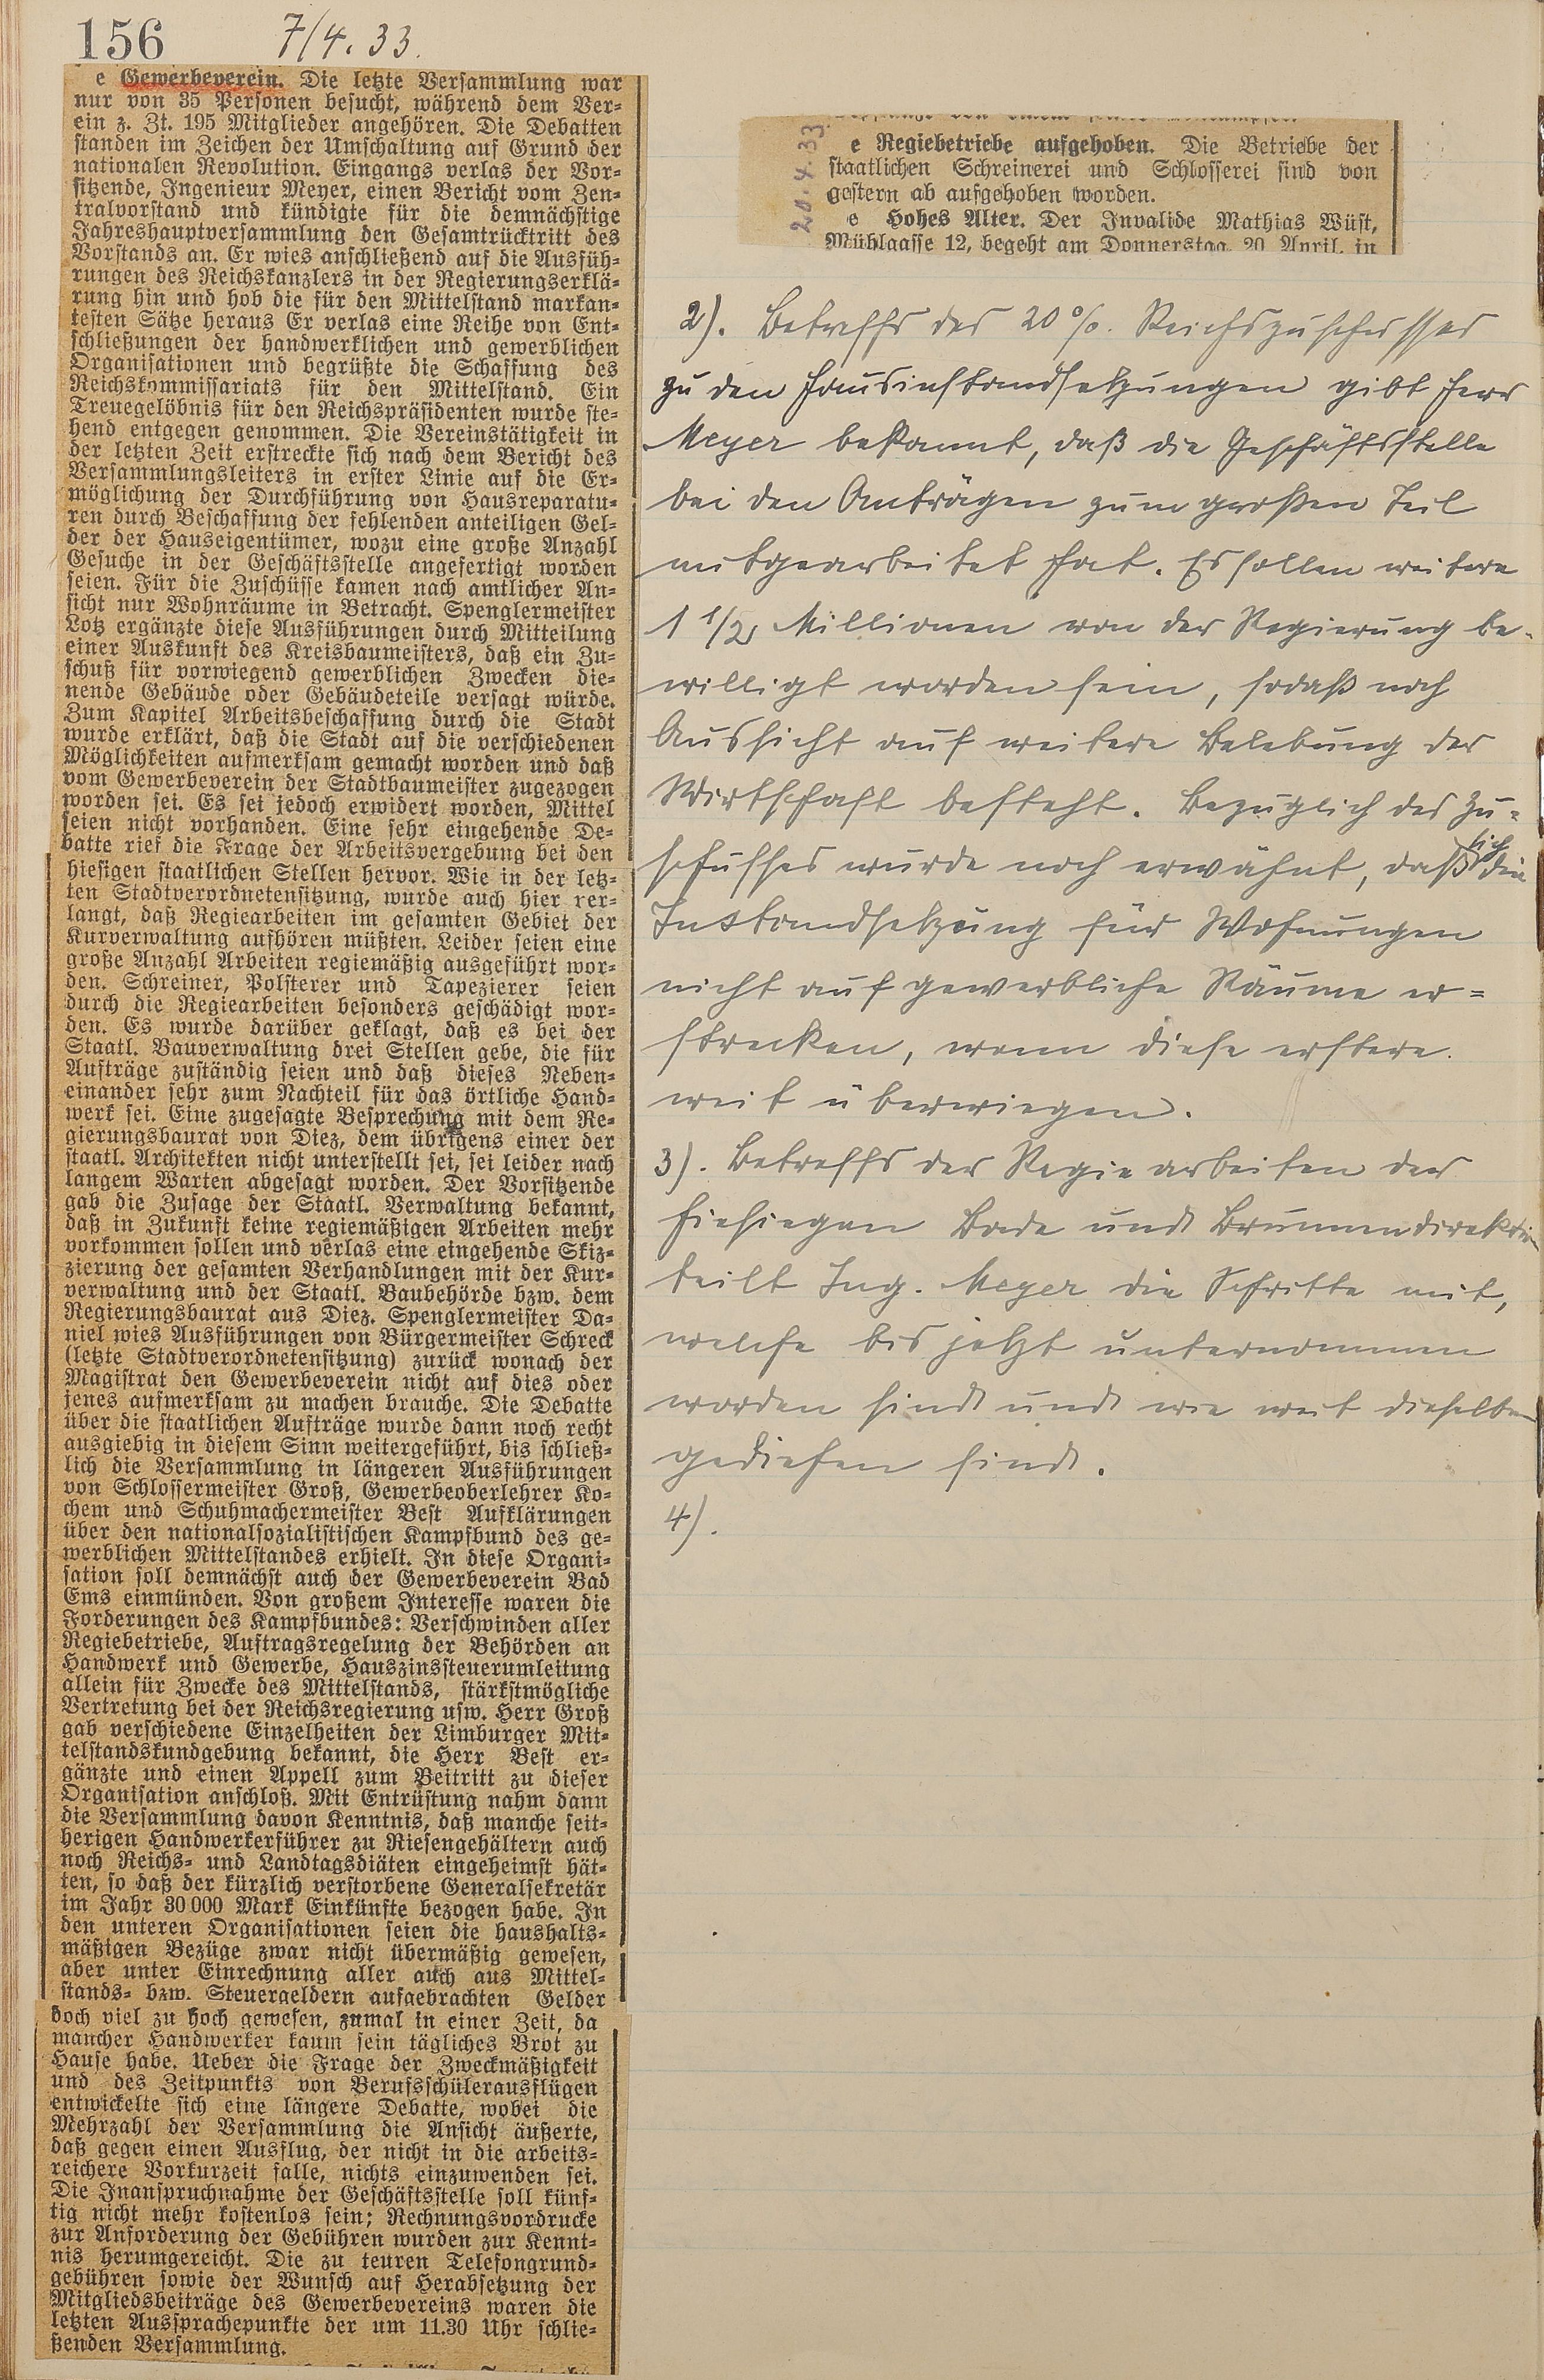 156
7/4. 33.
e Gewerbeverein. Die letzte Versammlung war
nur von 35 Personen besucht, während dem Ver-
ein z. Zt. 195 Mitglieder angehören. Die Debatten
standen im Zeichen der Umschaltung auf Grund der
nationalen Revolution. Eingangs verlas der Vor-
sitzende, Ingenieur Meyer, einen Bericht vom Zen-
tralvorstand und kündigte für die demnächstige
Jahreshauptversammlung den Gesamtrücktritt des
Vorstands an. Er wies anschließend auf die Ausfüh-
rungen des Reichskanzlers in der Regierungserklä-
rung hin und hob die für den Mittelstand markan-
testen Sätze heraus Er verlas eine Reihe von Ent-
schließungen der handwerklichen und gewerblichen
Organisationen und begrüßte die Schaffung des
Reichskommissariats für den Mittelstand. Ein
Treuegelöbnis für den Reichspräsidenten wurde ste-
hend entgegen genommen. Die Vereinstätigkeit in
der letzten Zeit erstreckte sich nach dem Bericht des
Versammlungsleiters in erster Linie auf die Er-
möglichung der Durchführung von Hausreparatu-
ren durch Beschaffung der fehlenden anteiligen Gel-
der der Hauseigentümer, wozu eine große Anzahl
Gesuche in der Geschäftsstelle angefertigt worden
seien. Für die Zuschüsse kamen nach amtlicher An-
sicht nur Wohnräume in Betracht. Spenglermeister
Lotz ergänzte diese Ausführungen durch Mitteilung
einer Auskunft des Kreisbaumeisters, daß ein Zu-
schuß für vorwiegend gewerblichen Zwecken die-
nende Gebäude oder Gebäudeteile versagt würde.
Zum Kapitel Arbeitsbeschaffung durch die Stadt
wurde erklärt, daß die Stadt auf die verschiedenen
Möglichkeiten aufmerksam gemacht worden und daß
vom Gewerbeverein der Stadtbaumeister zugezogen
worden sei. Es sei jedoch erwidert worden, Mittel
seien nicht vorhanden. Eine sehr eingehende De-
batte rief die Frage der Arbeitsvergebung bei den
hiesigen staatlichen Stellen hervor. Wie in der letz-
ten Stadtverordnetensitzung, wurde auch hier ver-
langt, daß Regiearbeiten im gesamten Gebiet der
Kurverwaltung aufhören müßten. Leider seien eine
große Anzahl Arbeiten regiemäßig ausgeführt wor-
den. Schreiner, Polsterer und Tapezierer seien
durch die Regiearbeiten besonders geschädigt wor-
den. Es wurde darüber geklagt, daß es bei der
Staatl. Bauverwaltung drei Stellen gebe, die für
Aufträge zuständig seien und daß dieses Neben-
einander sehr zum Nachteil für das örtliche Hand-
werk sei. Eine zugesagte Besprechung mit dem Re-
gierungsbaurat von Diez, dem übrigens einer der
staatl. Architekten nicht unterstellt sei, sei leider nach
langem Warten abgesagt worden. Der Vorsitzende
gab die Zusage der Staatl. Verwaltung bekannt,
daß in Zukunft keine regiemäßigen Arbeiten mehr
vorkommen sollen und verlas eine eingehende Skiz-
zierung der gesamten Verhandlungen mit der Kur-
verwaltung und der Staatl. Baubehörde bzw. dem
Regierungsbaurat aus Diez. Spenglermeister Da-
niel wies Ausführungen von Bürgermeister Schreck
(letzte Stadtverordnetensitzung) zurück wonach der
Magistrat den Gewerbeverein nicht auf dies oder
jenes aufmerksam zu machen brauche. Die Debatte
über die staatlichen Aufträge wurde dann noch recht
ausgiebig in diesem Sinn weitergeführt, bis schließ-
lich die Versammlung in längeren Ausführungen
von Schlossermeister Groß, Gewerbeoberlehrer Ko-
chem und Schuhmachermeister Best Aufklärungen
über den nationalsozialistischen Kampfbund des ge-
werblichen Mittelstandes erhielt. In diese Organi-
sation soll demnächst auch der Gewerbeverein Bad
Ems einmünden. Von großem Interesse waren die
Forderungen des Kampfbundes: Verschwinden aller
Regiebetriebe, Auftragsregelung der Behörden an
Handwerk und Gewerbe, Hauszinssteuerumleitung
allein für Zwecke des Mittelstands, stärkstmögliche
Vertretung bei der Reichsregierung usw. Herr Groß
gab verschiedene Einzelheiten der Limburger Mit-
telstandskundgebung bekannt, die Herr Best er-
gänzte und einen Appell zum Beitritt zu dieser
Organisation anschloß. Mit Entrüstung nahm dann
die Versammlung davon Kenntnis, daß manche seit-
herigen Handwerkerführer zu Riesengehältern auch
noch Reichs- und Landtagsdiäten eingeheimst hät-
ten, so daß der kürzlich verstorbene Generalsekretär
im Jahr 30 000 Mark Einkünfte bezogen habe. In
den unteren Organisationen seien die haushalts-
mäßigen Bezüge zwar nicht übermäßig gewesen,
aber unter Einrechnung aller auch aus Mittel-
stands- bzw. Steuergeldern aufgebrachten Gelder
doch viel zu hoch gewesen, zumal in einer Zeit, da
mancher Handwerker kaum sein tägliches Brot zu
Hause habe. Ueber die Frage der Zweckmäßigkeit
und des Zeitpunkts von Berufsschülerausflügen
entwickelte sich eine längere Debatte, wobei die
Mehrzahl der Versammlung die Ansicht äußerte,
daß gegen einen Ausflug, der nicht in die arbeits-
reichere Vorkurzeit falle, nichts einzuwenden sei.
Die Inanspruchnahme der Geschäftsstelle soll künf-
tig nicht mehr kostenlos sein; Rechnungsvordrucke
zur Anforderung der Gebühren wurden zur Kennt-
nis herumgereicht. Die zu teuren Telefongrund-
gebühren sowie der Wunsch auf Herabsetzung der
Mitgliedsbeiträge des Gewerbevereins waren die
letzten Aussprachepunkte der um 11.30 Uhr schlie-
ßenden Versammlung.
20.4.33
e Regiebetriebe aufgehoben. Die Betriebe der
staatlichen Schreinerei und Schlosserei sind von
gestern ab aufgehoben worden.
e Hohes Alter. Der Invalide Mathias Wüst,
Mühlgasse 12, begeht am Donnerstag, 20. April, in
2). Betreffs des 20 %. Reichszuschusses
zu den Hausinstandsetzungen gibt Herr
Meyer bekannt, daß die Geschäftsstelle
bei den Anträgen zum großen Teil
mitgearbeitet hat. Es sollen weitere
1 1/2 Millionen von der Regierung be-
willigt worden sein, sodaß noch
Aussicht auf weitere Belebung der
Wirtschaft besteht. Bezüglich des Zu-
schusses wurde noch erwähnt, daß sich die
Instandsetzung für Wohnungen
nicht auf gewerbliche Räume er-
strecken, wenn diese erstere
weit überwiegen.
3). Betreffs der Regiearbeiten der
hiesiegen Bade und Brunnendirektion
teilt Ing. Meyer die Schritte mit,
welche bis jetzt unternommen
worden sind und wie weit dieselben
gediehen sind.
4).